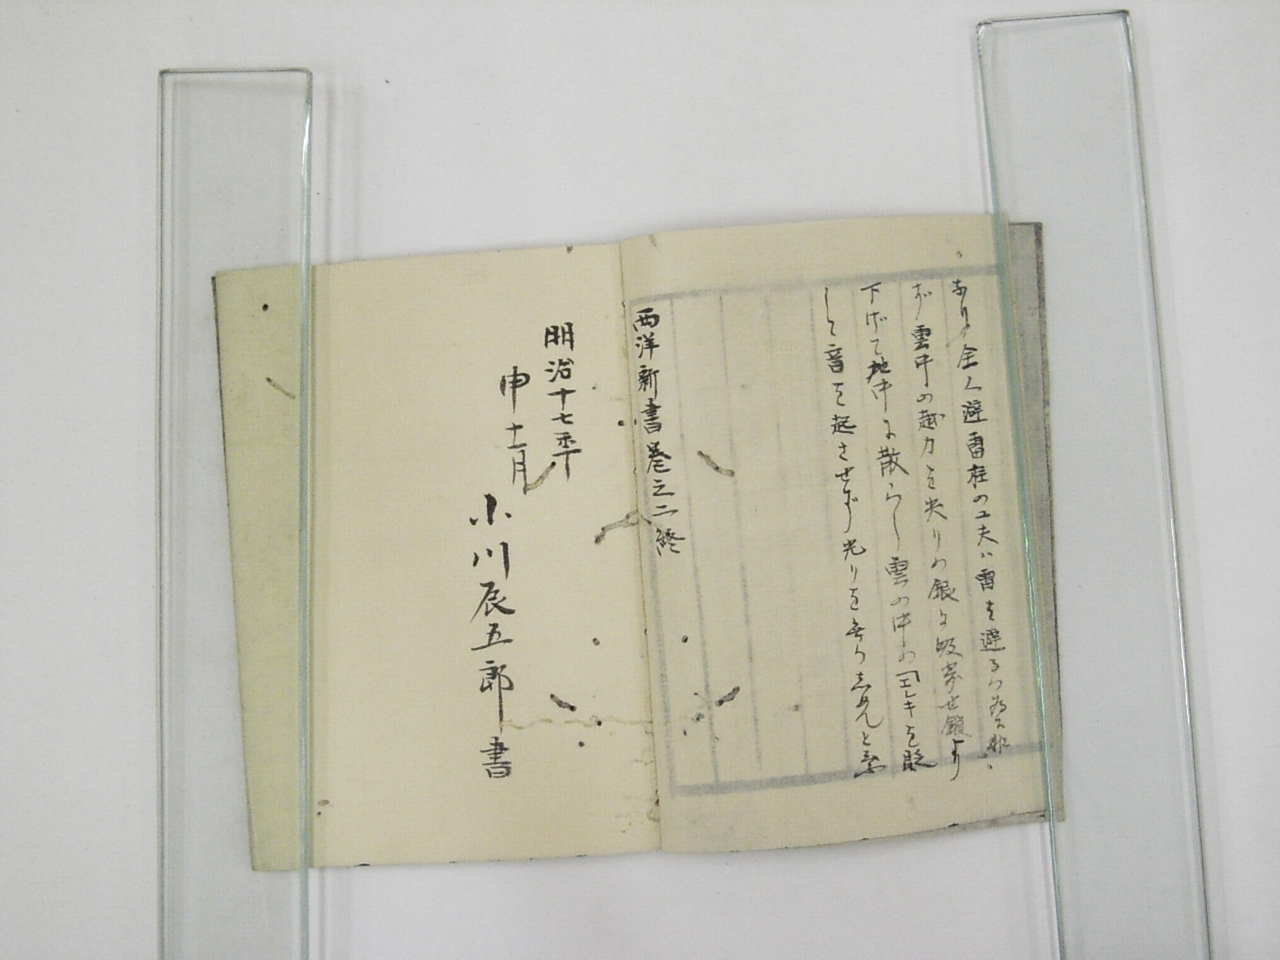 なり全く避雷柱の工夫ハ雷を避るの為に非
ず雲中の越力を失りの銀に吸寄せ鎖より
下げて地中に散らし雲の中の「エレキを貶
して音を起させず光りを無らしめんと
西洋新書巻之二終
明治十七年
申十一月
小川辰五郎書